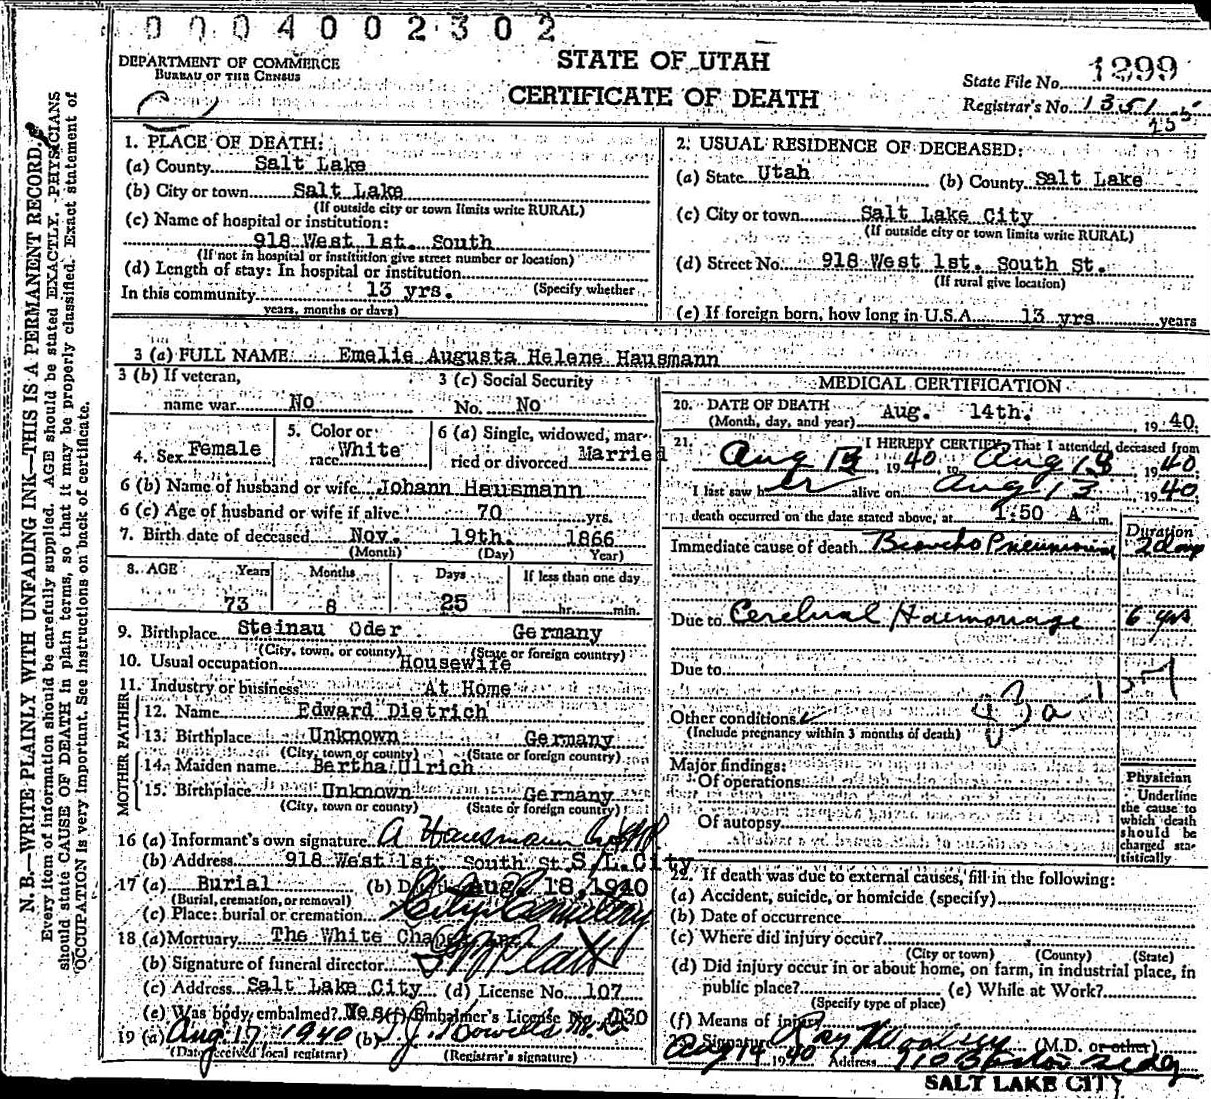 0004002302
DEPARTMENT OF COMMERCE
BUREAU OF THE CENSUS
STATE OF UTAH
CERTIFICATE OF DEATH
State File No. 1299
Registrar's No. 1351
255
N. B.—WRITE PLAINLY WITH UNFADING INK—THIS IS A PERMANENT RECORD.
Every item of information should be carefully supplied. AGE should be stated EXACTLY. PHYSICIANS
should state CAUSE OF DEATH in plain terms, so that it may be properly classified. Exact statement of
OCCUPATION is very important. See instructions on back of certificate.
1. PLACE OF DEATH:
(a) County Salt Lake
(b) City or town Salt Lake
(If outside city or town limits write RURAL)
(c) Name of hospital or institution:
918 West 1st. South
(If not in hospital or institution give street number or location)
(d) Length of stay: In hospital or institution
In this community 13 yrs. (Specify whether
years, months or days)
2. USUAL RESIDENCE OF DECEASED:
(a) State Utah (b) County Salt Lake
(c) City or town Salt Lake City
(If outside city or town limits write RURAL)
(d) Street No. 918 West 1st. South St.
(If rural give location)
(e) If foreign born, how long in U.S.A. 13 yrs years
3 (a) FULL NAME Emelie Augusta Helene Hausmann
3 (b) If veteran,
name war No
3 (c) Social Security
No. No
4. Sex Female
5. Color or
race White
6 (a) Single, widowed, mar-
ried or divorced Married
6 (b) Name of husband or wife Johann Hausmann
6 (c) Age of husband or wife if alive 70 yrs.
7. Birth date of deceased Nov. 19th. 1866
(Month) (Day) Year)
8. AGE Years Months Days If less than one day
73 8 25 hr. min.
9. Birthplace Steinau Oder Germany
(City, town, or county) (State or foreign country)
10. Usual occupation Housewife
11. Industry or business At Home
FATHER
12. Name Edward Dietrich
13. Birthplace Unknown Germany
(City, town or county) (State or foreign country)
MOTHER
14. Maiden name Bertha Ulrich
15. Birthplace Unknown Germany
(City, town or county) (State or foreign country)
16 (a) Informant's own signature A Hausmann
(b) Address 918 West 1st. South St. S.L.City
17 (a) Burial (b) Aug 18, 1940
(Burial, cremation, or removal)
(c) Place: burial or cremation City Cemetery
18 (a) Mortuary The White Chapel
(b) Signature of funeral director
(c) Address Salt Lake City (d) License No. 107
(e) Was body embalmed? Yes (f) Embalmer's License No. 030
19 (a) Aug 17 1940 (b)
(Date received local registrar) (Registrar's signature)
MEDICAL CERTIFICATION
20. DATE OF DEATH Aug. 14th. 1940.
(Month, day, and year)
21. I HEREBY CERTIFY That I attended deceased from
Aug 13 1940 to Aug 13 1940
I last saw her alive on Aug 13 1940
death occurred on the date stated above, at 1:50 A m.
Duration
Immediate cause of death Broncho Pneumonia 2 days
Due to Cerebral Haemorrage 6 yrs
Due to
83a
Other conditions
(Include pregnancy within 3 months of death)
Major findings:
Of operations
Of autopsy
Physician
Underline
the cause to
which death
should be
charged sta-
tistically
22. If death was due to external causes, fill in the following:
(a) Accident, suicide, or homicide (specify)
(b) Date of occurrence
(c) Where did injury occur?
(City or town) (County) (State)
(d) Did injury occur in or about home, on farm, in industrial place, in
public place? (e) While at Work?
(Specify type of place)
(f) Means of injury
Signature Ray Woolsey (M.D. or other)
Aug 14 1940 Address 910 Boston Bldg
SALT LAKE CITY